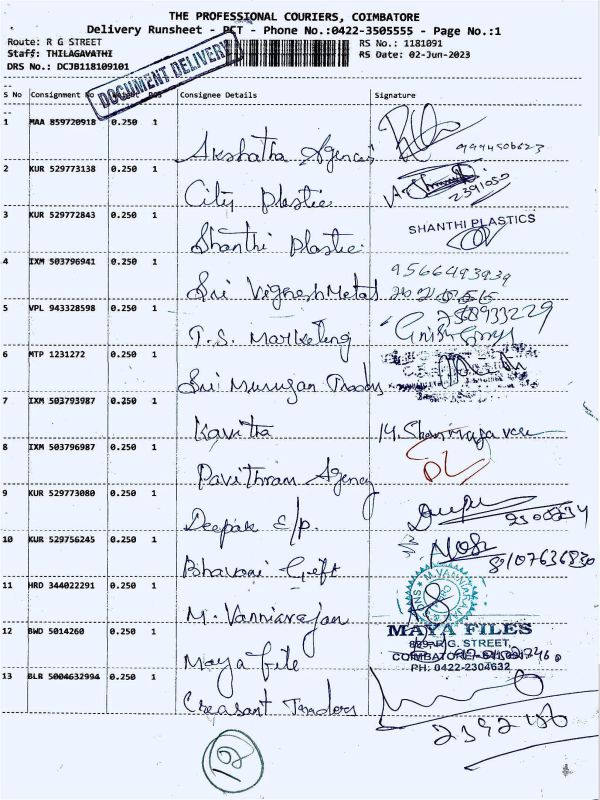 THE PROFESSIONAL COURIERS, COIMBATORE
Delivery Runsheet - PCT - Phone No.:0422-3505555 - Page No.:1
Route: R G STREET RS No.: 1181091
Staff: THILAGAVATHI RS Date: 02-Jun-2023
DRS No.: DCJB118109101
DOCUMENT DELIVERY
S No Consignment No Consignee Details Signature
1 MAA 859720918 0.250 1 Akshatha Agencies
2 KUR 529773138 0.250 1 City Plastic 2391050
3 KUR 529772843 0.250 1 Shanthi Plastic SHANTHI PLASTICS
4 IXM 503796941 0.250 1 Sri Vignesh Metal 9566493939
5 VPL 943328598 0.250 1 T.S. Marketing
6 MTP 1231272 0.250 1 Sri Murugan Traders
7 IXM 503793987 0.250 1 Kavitha M. Shanmugavel
8 IXM 503796987 0.250 1 Pavithram Agency
9 KUR 529773080 0.250 1 Deepak E/p.
10 KUR 529756245 0.250 1 Bhavani Gift
11 HRD 344022291 0.250 1 M. Vanniarajan
12 BWD 5014260 0.250 1 Maya File MAYA FILES
R.G. STREET,
COIMBATORE
PH: 0422-2304632
13 BLR 5004632994 0.250 1 Creasant Traders